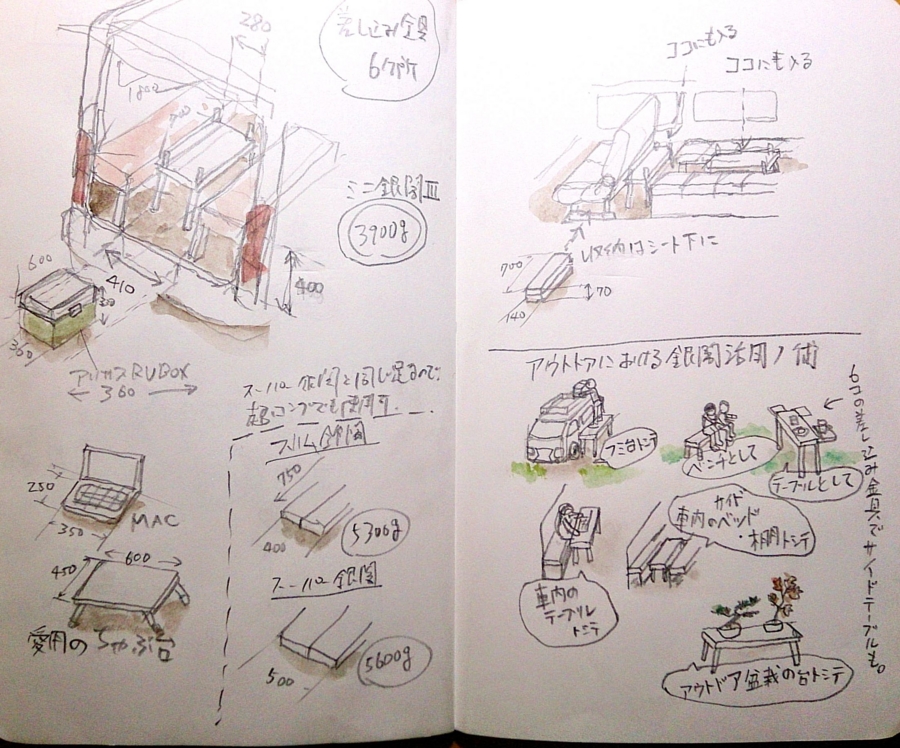 差し込み金具
6ケ所
280
1800
700
ミニ銀閣Ⅲ
3900g
400
410
600
360
アイリスRVBOX
360
スーパー銀閣と同じ足なので、
超ロングでも使用可.
スリム銀閣
750
400
5300g
スーパー銀閣
500
5600g
250
350
MAC
450
600
愛用のちゃぶ台
ココにも入る
ココにも入る
収納はシート下に
700
140
70
アウトドアにおける銀閣活用ノ術
フミ台トシテ
ベンチとして
テーブルとして
6コの差し込み金具でサイドテーブルも。
車内の
テーブル
トシテ
車内のベッド
サイド
・棚トシテ
アウトドア盆栽の台トシテ